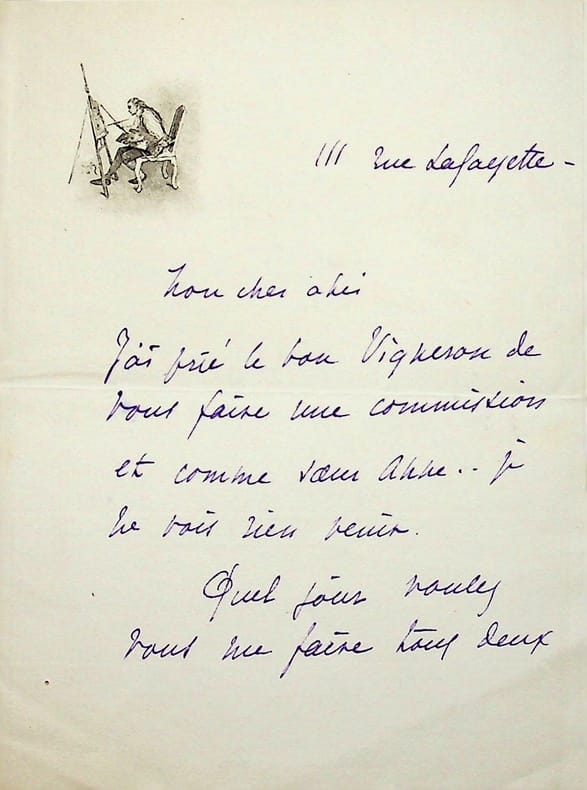 111 rue Lafayette -
Mon cher ami
J'ai prié le bon Vigneron de
vous faire une commission
et comme sœur Anne.. je
ne vois rien venir.
Quel jour voulez
vous me faire tous deux